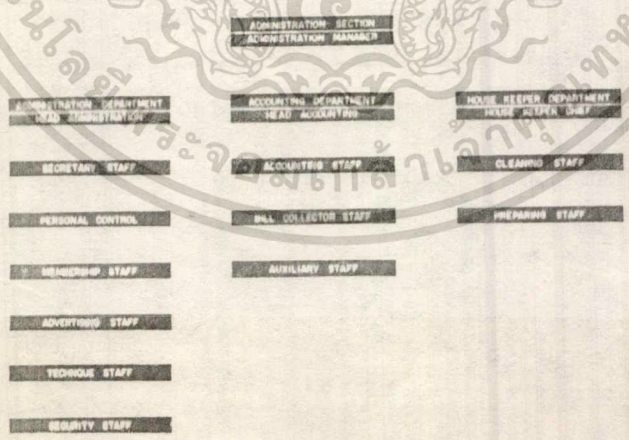 ADMINISTRATION SECTION
ADMINISTRATION MANAGER
ADMINISTRATION DEPARTMENT
HEAD ADMINISTRATION
SECRETARY STAFF
PERSONAL CONTROL
MEMBERSHIP STAFF
ADVERTISING STAFF
TECHNIQUE STAFF
SECURITY STAFF
ACCOUNTING DEPARTMENT
HEAD ACCOUNTING
ACCOUNTING STAFF
BILL COLLECTOR STAFF
AUXILIARY STAFF
HOUSE KEEPER DEPARTMENT
HOUSE KEEPER CHIEF
CLEANING STAFF
PREPARING STAFF